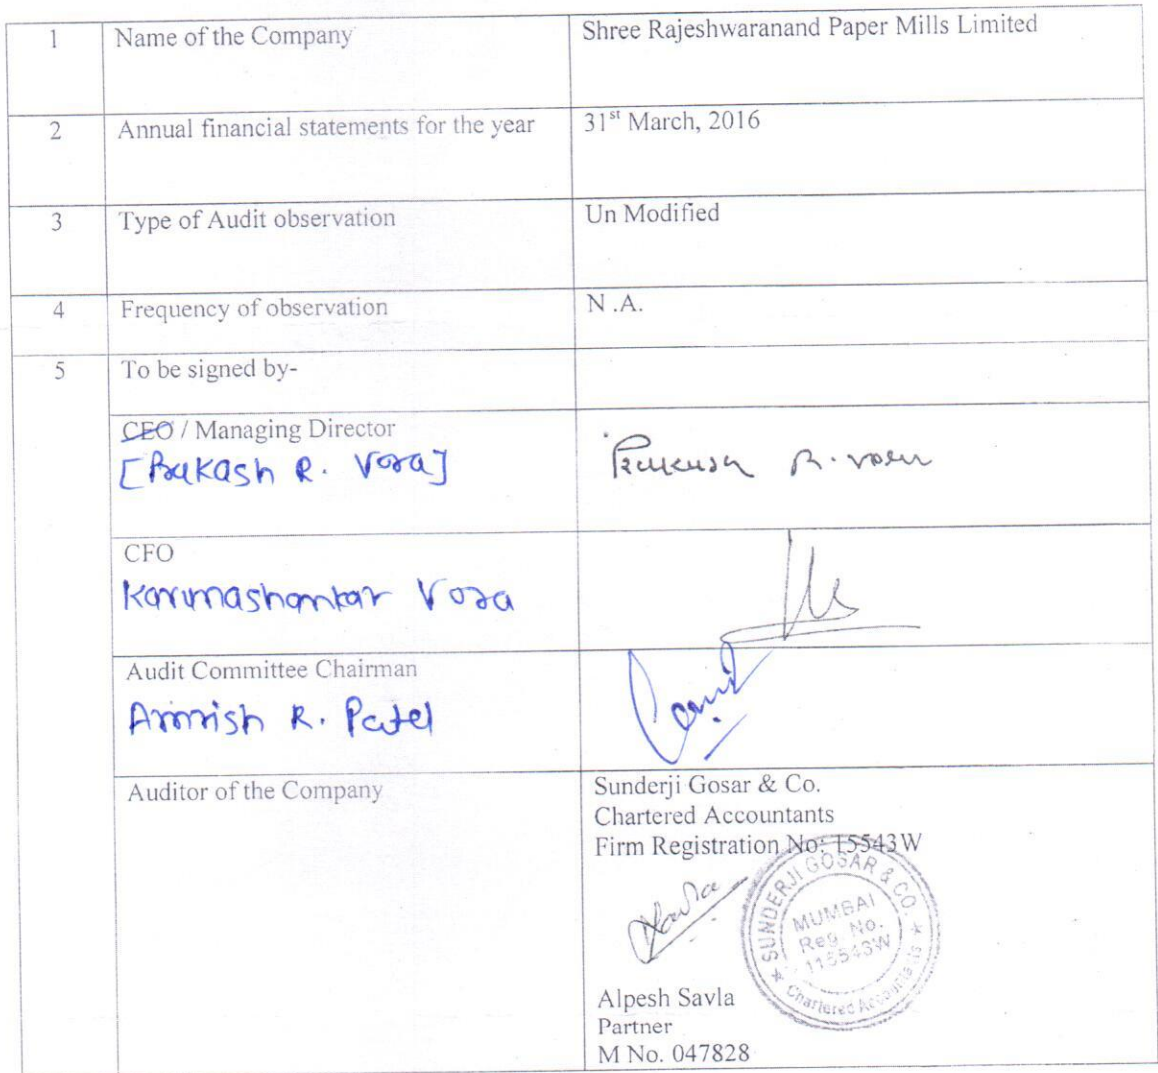 1 Name of the Company Shree Rajeshwaranand Paper Mills Limited
2 Annual financial statements for the year 31st March, 2016
3 Type of Audit observation Un Modified
4 Frequency of observation N .A.
5 To be signed by-
CEO / Managing Director
[Prakash R. Vora] Prakash R. Vora
CFO
Karunashankar Vora
Audit Committee Chairman
Amrish R. Patel
Auditor of the Company Sunderji Gosar & Co.
Chartered Accountants
Firm Registration No: 15543W
SUNDERJI GOSAR & CO.
MUMBAI
Reg. No.
115543W
Chartered Accountants
Alpesh Savla
Partner
M No. 047828